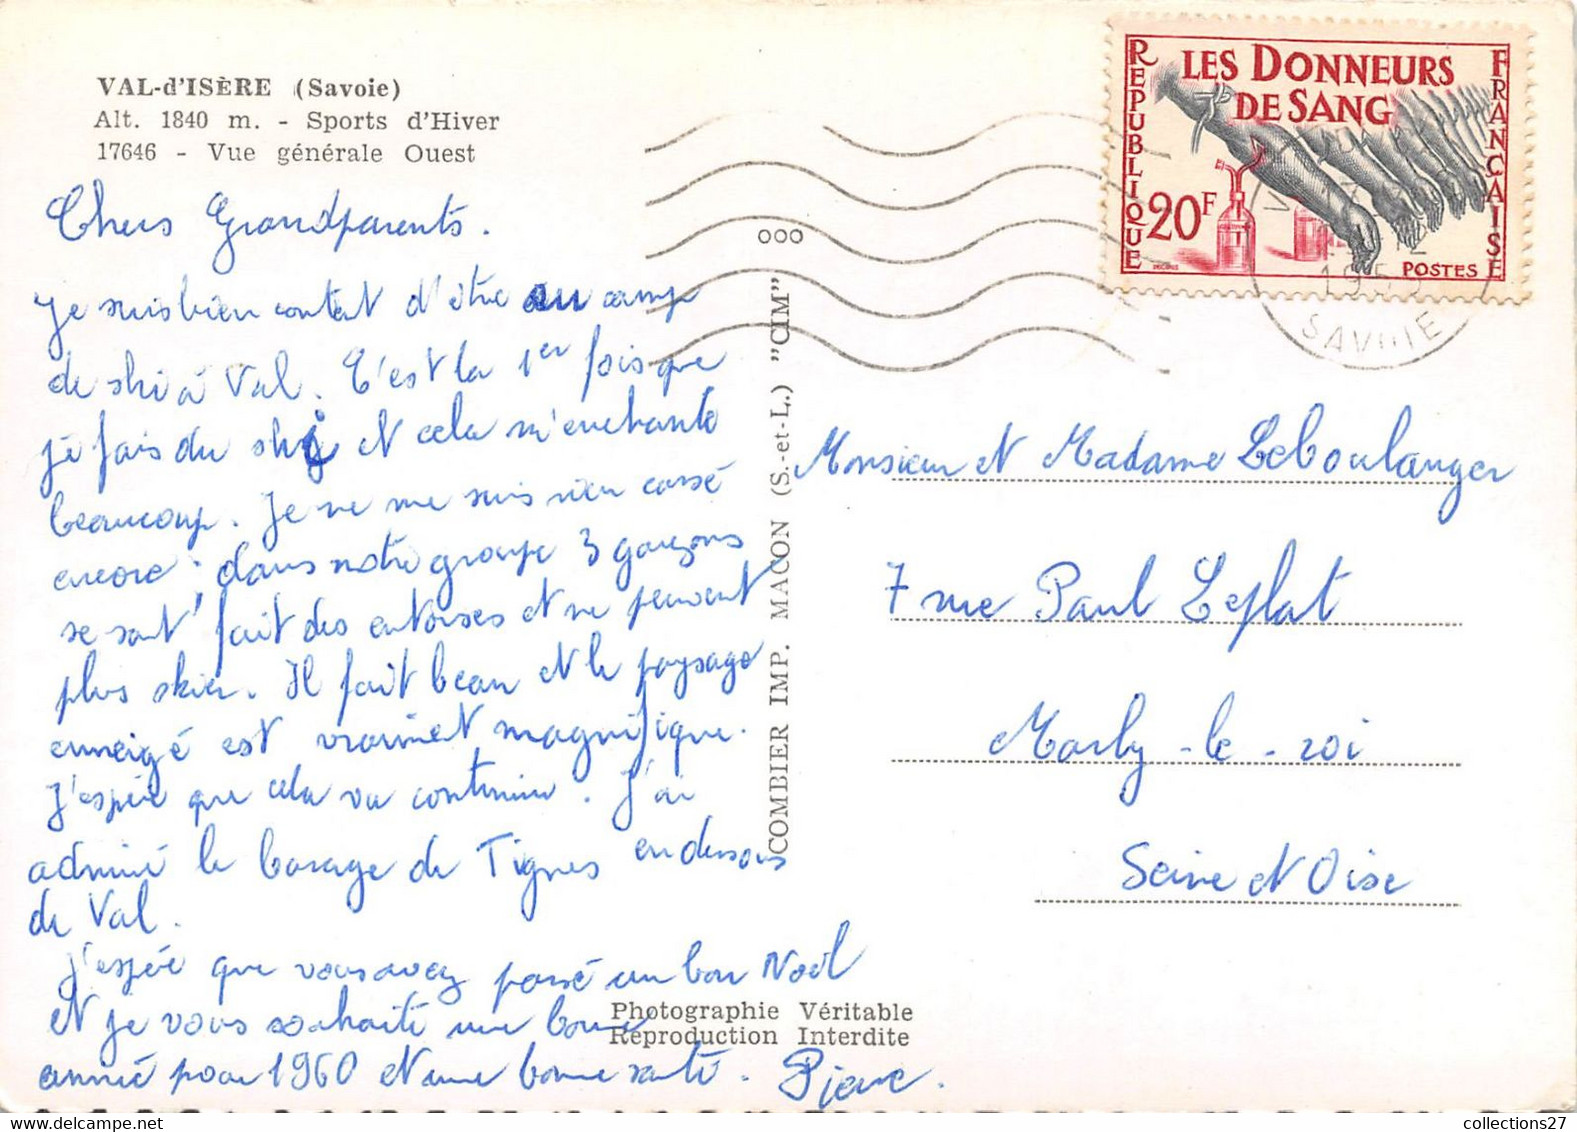 VAL-d'ISÈRE (Savoie)
Alt. 1840 m. - Sports d'Hiver
17646 - Vue générale Ouest
Chers Grandparents.
Je suis bien content d'être au camp
de ski à Val. C'est la 1er fois que
je fais du ski et cela m'enchante
beaucoup. Je ne me suis rien cassé
encore ; dans notre groupe 3 garçons
se sont fait des entorses et ne peuvent
plus skier. Il fait beau et le paysage
enneigé est vraiment magnifique.
J'espère que cela va continuer. J'ai
admiré le barage de Tignes en dessous
de Val.
J'espère que vous avez passé un bon Noël
et je vous souhaite une bonne
année pour 1960 et une bonne santé. Pierre.
ooo
COMBIER IMP. MACON (S.-et-L.) "CIM"
Photographie Véritable
Reproduction Interdite
REPUBLIQUE
LES DONNEURS
DE SANG
FRANÇAISE
20F
POSTES
DECARIS
SAVOIE
Monsieur et Madame Leboulanger
7 rue Paul Leplat
Marly-le-roi
Seine et Oise
collections27